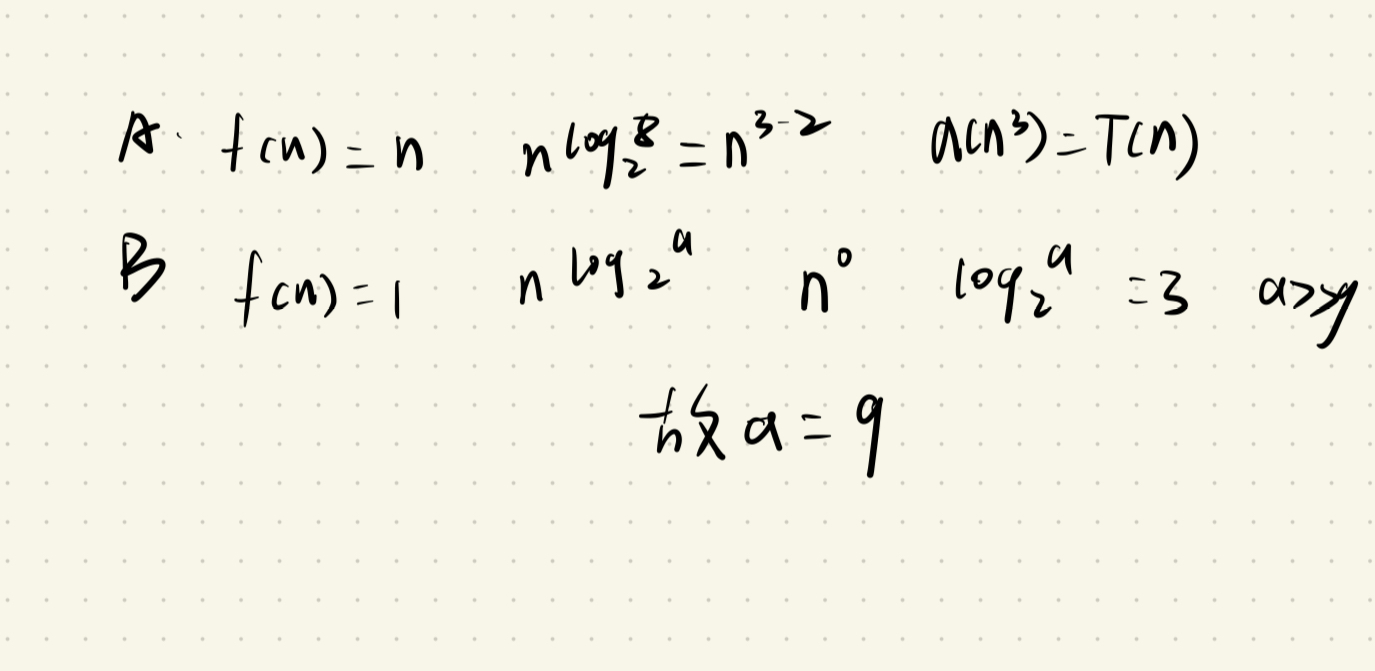 A. f(n) = n n^{log_2 8} = n^{3-2} a(n^3) = T(n)
B f(n) = 1 n^{log_2 a} n^0 log_2 a = 3 a>
故 a = 9